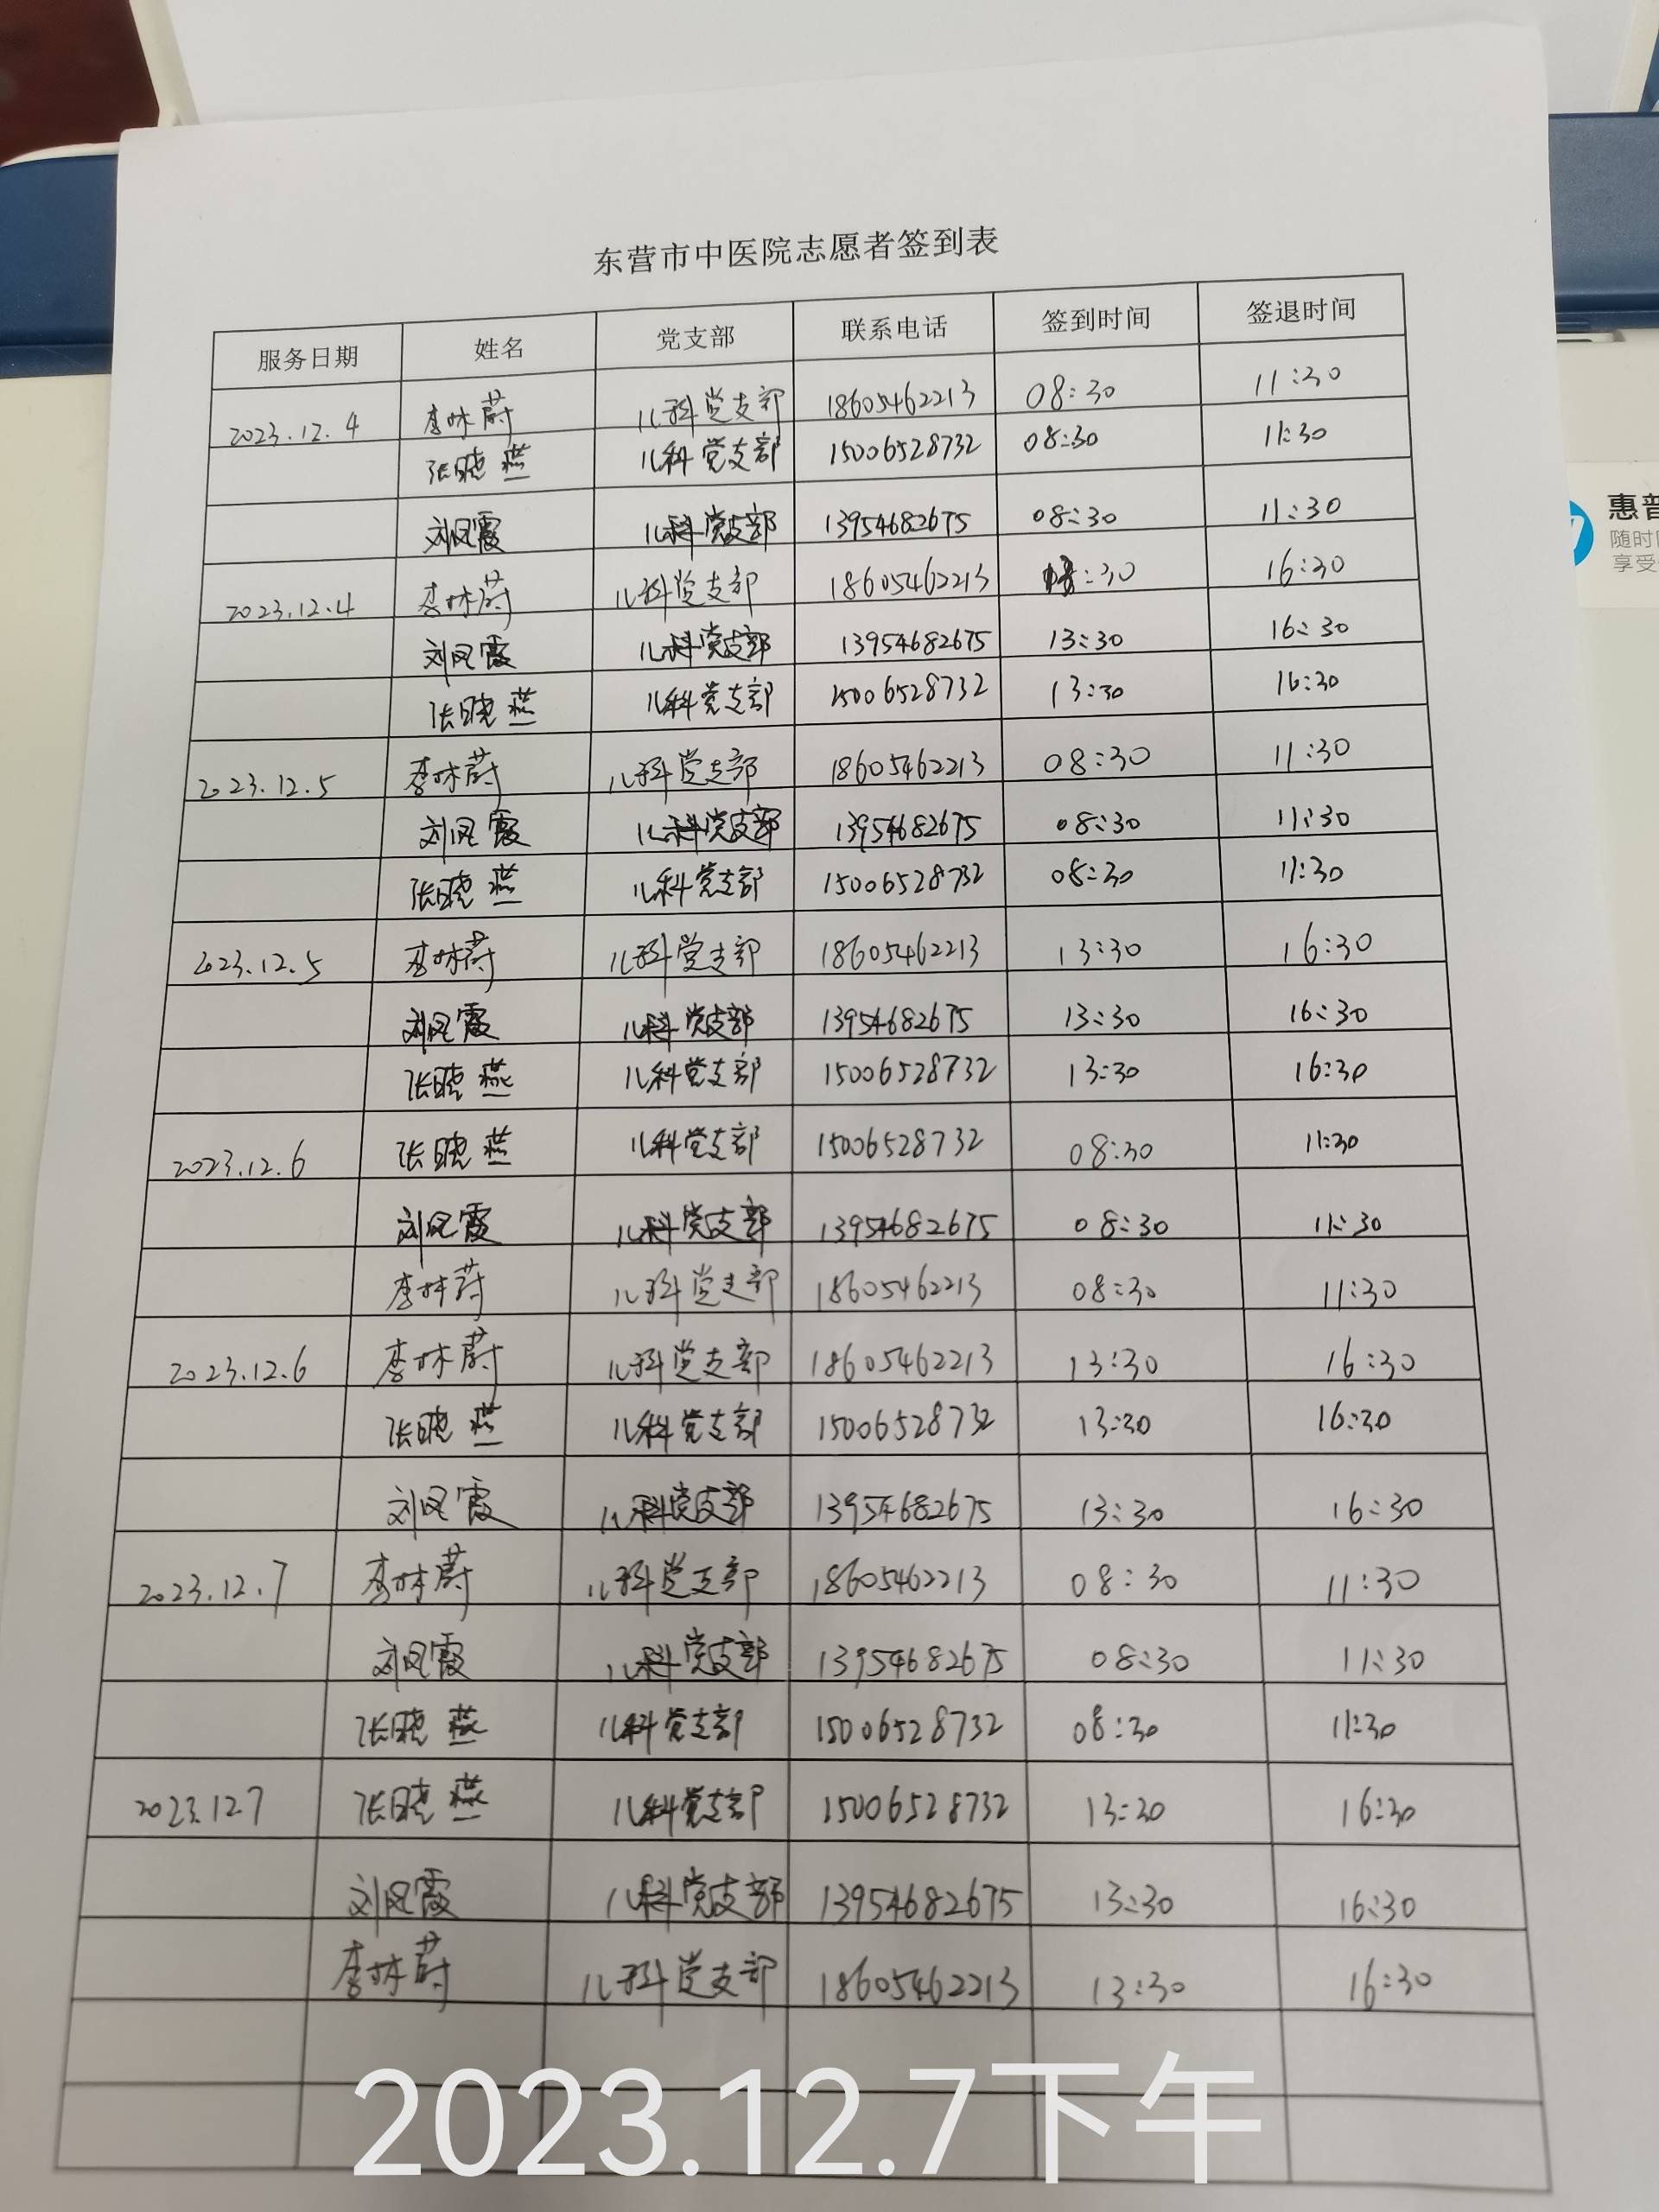 东营市中医院志愿者签到表
服务日期 姓名 党支部 联系电话 签到时间 签退时间
2023.12.4 李林蔚 儿科党支部 18605462213 08:30 11:30
张晓燕 儿科党支部 15006528732 08:30 11:30
刘凤霞 儿科党支部 13954682675 08:30 11:30
2023.12.4 李林蔚 儿科党支部 18605462213 :30 16:30
刘凤霞 儿科党支部 13954682675 13:30 16:30
张晓燕 儿科党支部 15006528732 13:30 16:30
2023.12.5 李林蔚 儿科党支部 18605462213 08:30 11:30
刘凤霞 儿科党支部 13954682675 08:30 11:30
张晓燕 儿科党支部 15006528732 08:30 11:30
2023.12.5 李林蔚 儿科党支部 18605462213 13:30 16:30
刘凤霞 儿科党支部 13954682675 13:30 16:30
张晓燕 儿科党支部 15006528732 13:30 16:30
2023.12.6 张晓燕 儿科党支部 15006528732 08:30 11:30
刘凤霞 儿科党支部 13954682675 08:30 11:30
李林蔚 儿科党支部 18605462213 08:30 11:30
2023.12.6 李林蔚 儿科党支部 18605462213 13:30 16:30
张晓燕 儿科党支部 15006528732 13:30 16:30
刘凤霞 儿科党支部 13954682675 13:30 16:30
2023.12.7 李林蔚 儿科党支部 18605462213 08:30 11:30
刘凤霞 儿科党支部 13954682675 08:30 11:30
张晓燕 儿科党支部 15006528732 08:30 11:30
2023.12 7 张晓燕 儿科党支部 15006528732 13:30 16:30
刘凤霞 儿科党支部 13954682675 13:30 16:30
李林蔚 儿科党支部 18605462213 13:30 16:30
2023.12.7下午
惠普
随时
享受